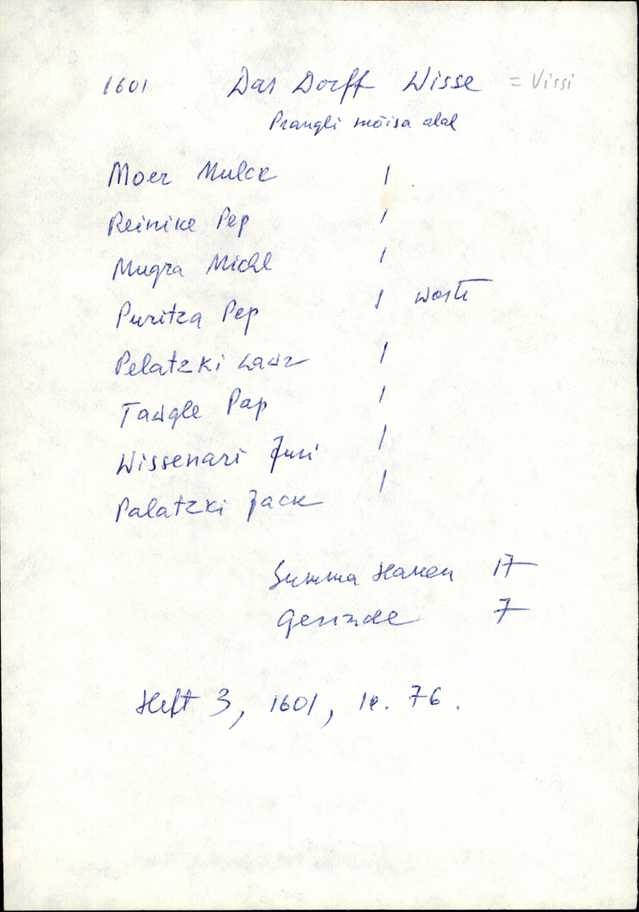 1601 Das Dorff Wisse = Vissi
Prangli mõisa alal
Moer Mulck 1
Reinike Pep 1
Mugra Michl 1
Puritza Pep 1 wost
Pelatzki Laur 1
Tawgle Pap 1
Wissenari Juri 1
Palatzki Jack 1
Summa Haken 17
Gesinde 7
Heft 3, 1601, lk. 76.